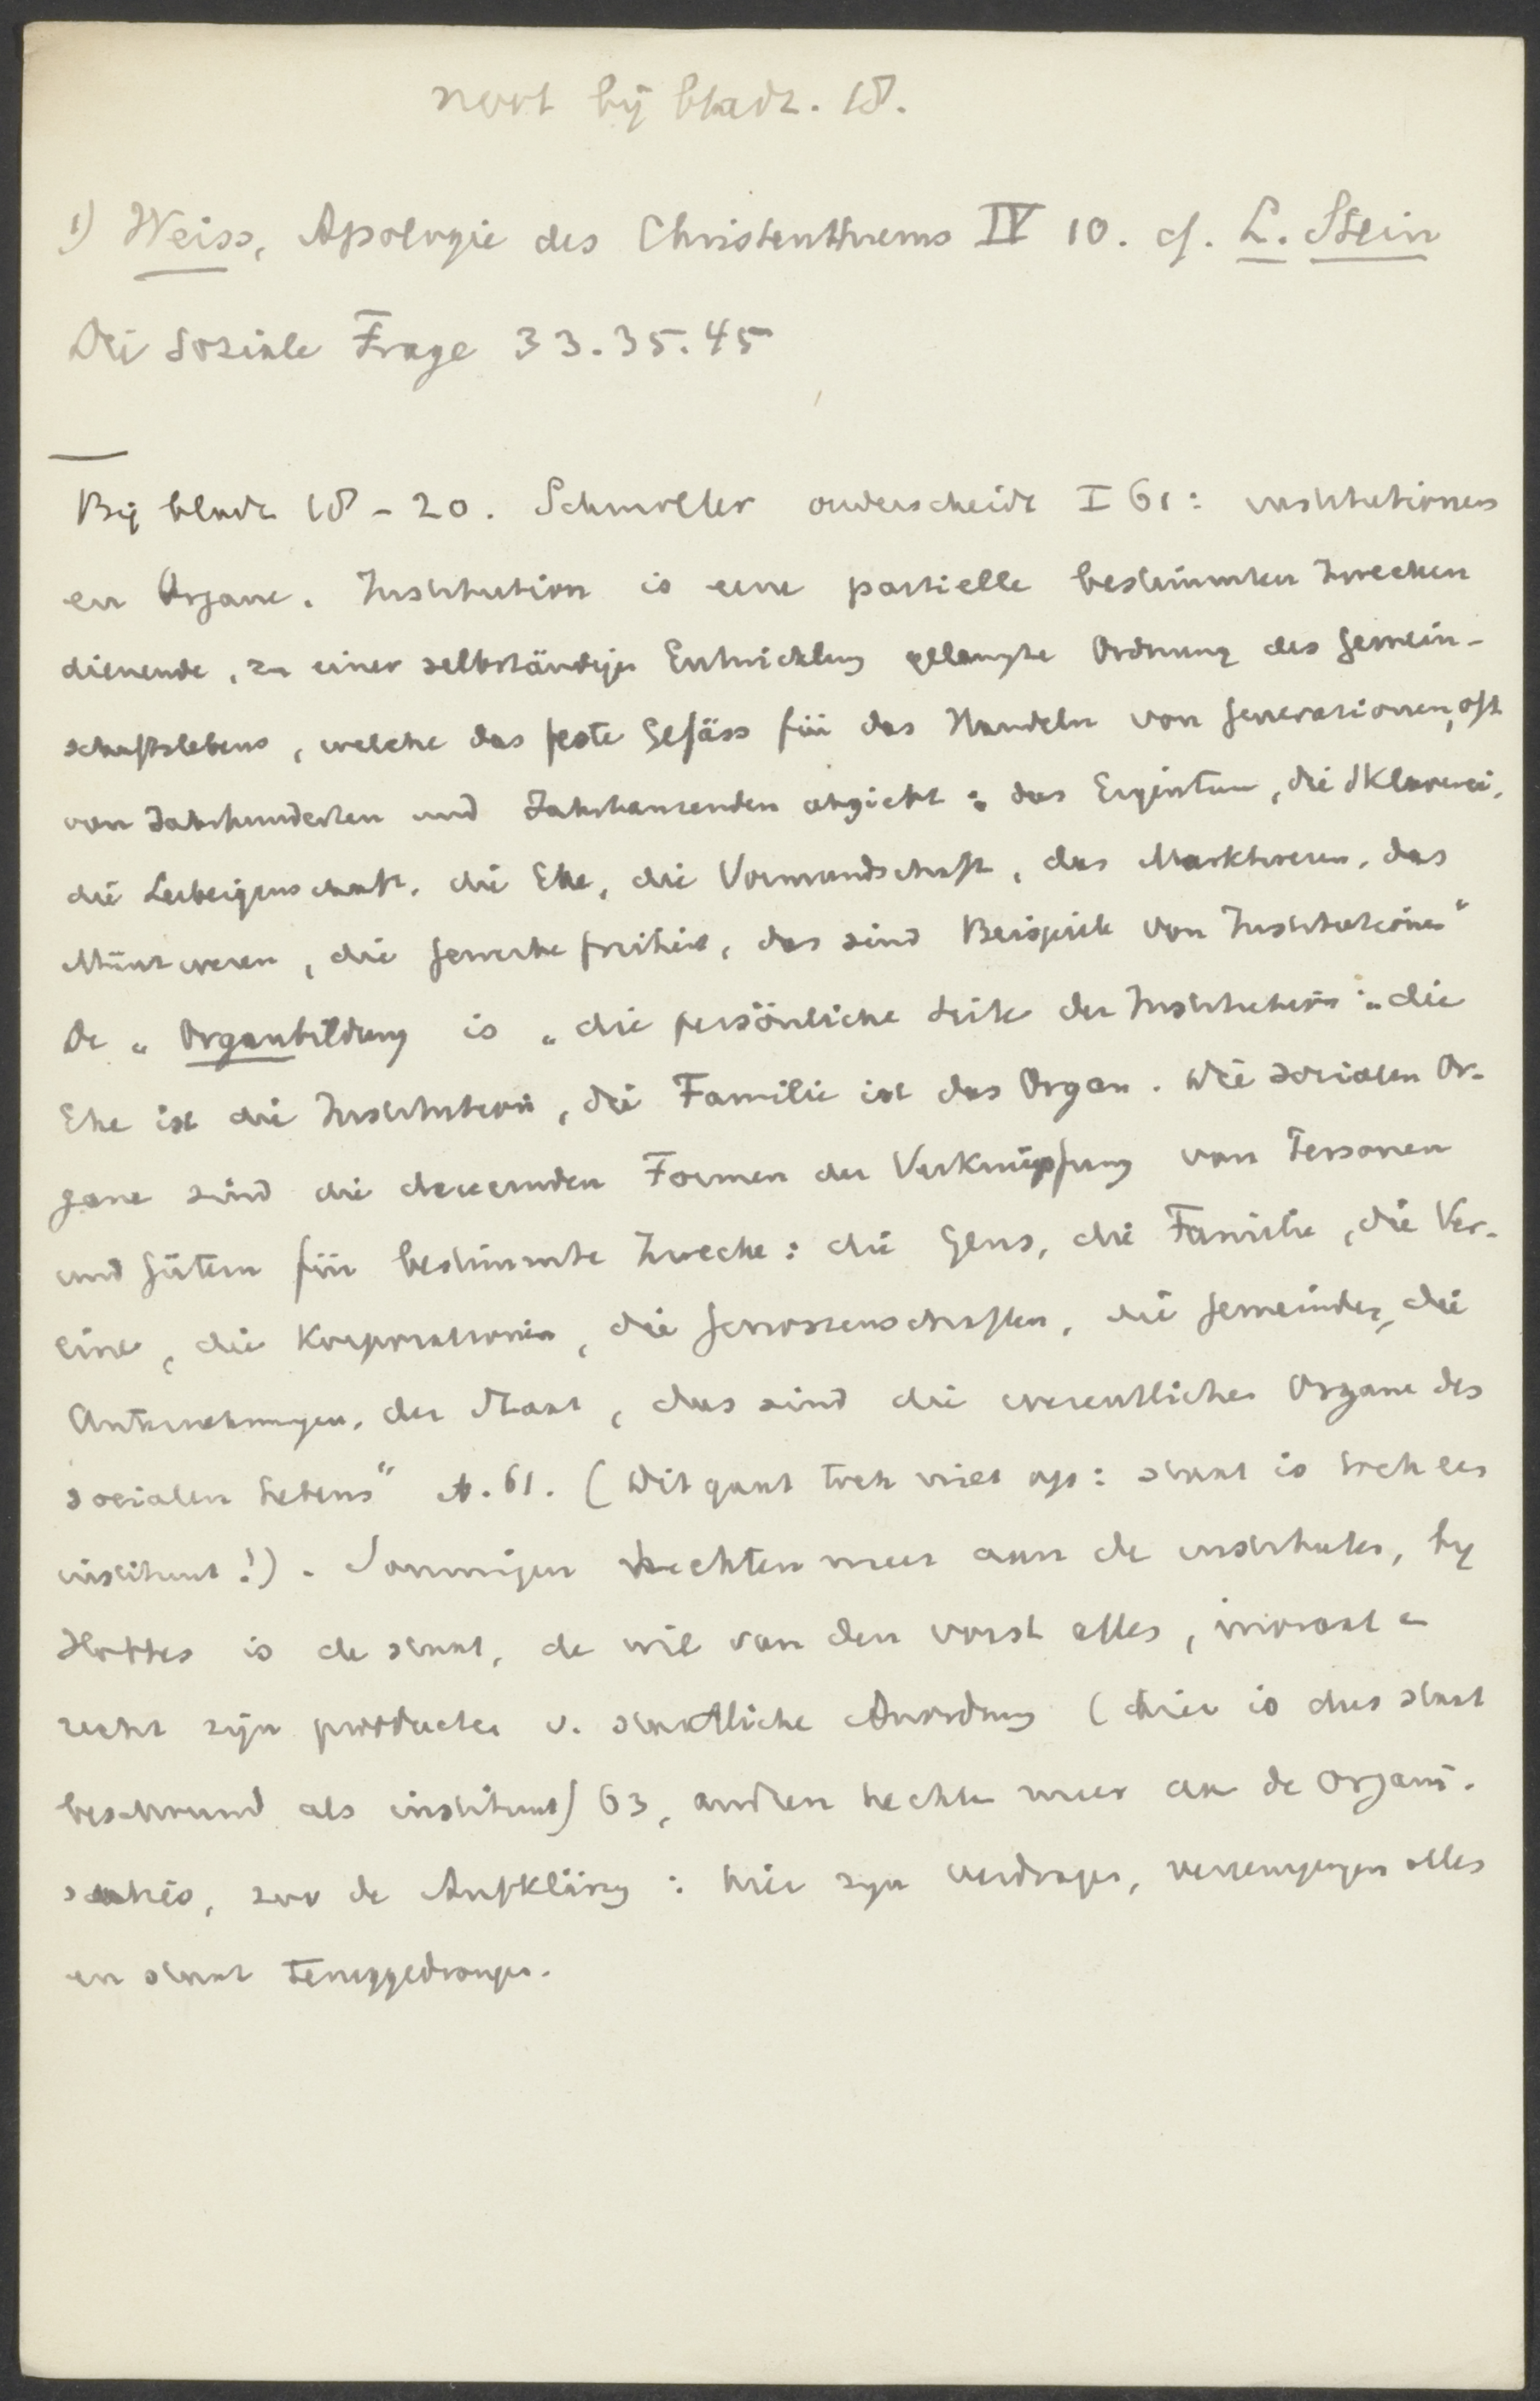 noot bij bladz. 18.
1) Weiss, Apologie des Christenthums IV 10. cf. L. Stein
Die soziale Frage 33.35.45
Bij bladz 18-20. Schmoller onderscheidt I 61: institutionen
en Organe. Institution is eene partielle bestimmten Zwecken
dienende, zu einer selbständigen Entwicklung gelangte Ordnung des Gemein-
schaftslebens, welche das feste Gefäss für das Handeln von Generationen, oft
von Jahrhunderten und Jahrtausenden abgiebt: das Eigentum, die Sklaverei,
die Leibeigenschaft, die Ehe, die Vormundschaft, das Marktwesen, das
Münzwesen, die Gewerbefreiheit, das sind Beispiele von Institutionen“
De „Organbildung is „die persönliche Seite der Institution: „die
Ehe ist die Institution, die Familie ist das Organ. Die socialen Or-
gane sind die dauernden Formen der Verknüpfung von Personen
und Gütern für bestimmte Zwecke: die Gens, die Familie, die Ver-
eine, die Korporationen, die Genossenschaften, die Gemeinden, die
Unternehmungen, der Staat, das sind die wesentlichen Organe des
socialen Lebens“ S. 61. (Dit gaat toch niet op: staat is toch een
instituut!). Sommigen hechten meer aan de instituten, bij
Hobbes is de staat, de wil van den vorst alles, moraal en
recht zijn producten v. staatliche Anordnung (hier is dus staat
beschouwd als instituut) 63, andren hechten meer aan de organi-
satie, zoo de Aufklärung: hier zijn verdragen, vereenigingen alles
en staat teruggedrongen.